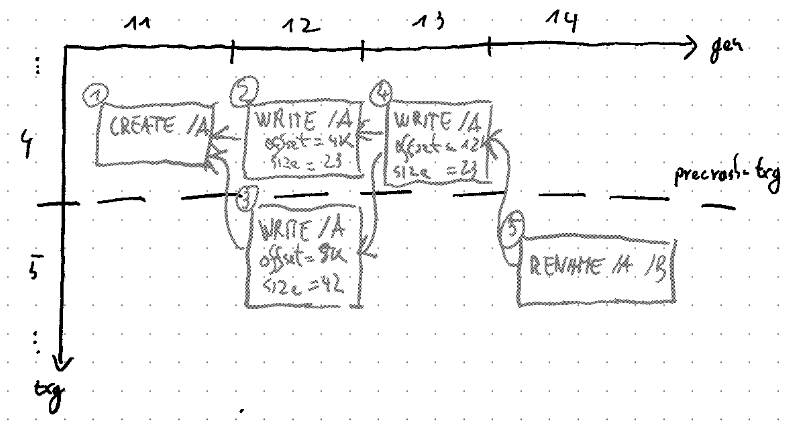 11 12 13 14
gen
...
4
1
CREATE /A
2
WRITE /A
offset=4K
size=23
4
WRITE /A
offset=12K
size=23
precrash-txg
5
3
WRITE /A
offset=8K
size=42
5
RENAME /A /B
...
txg